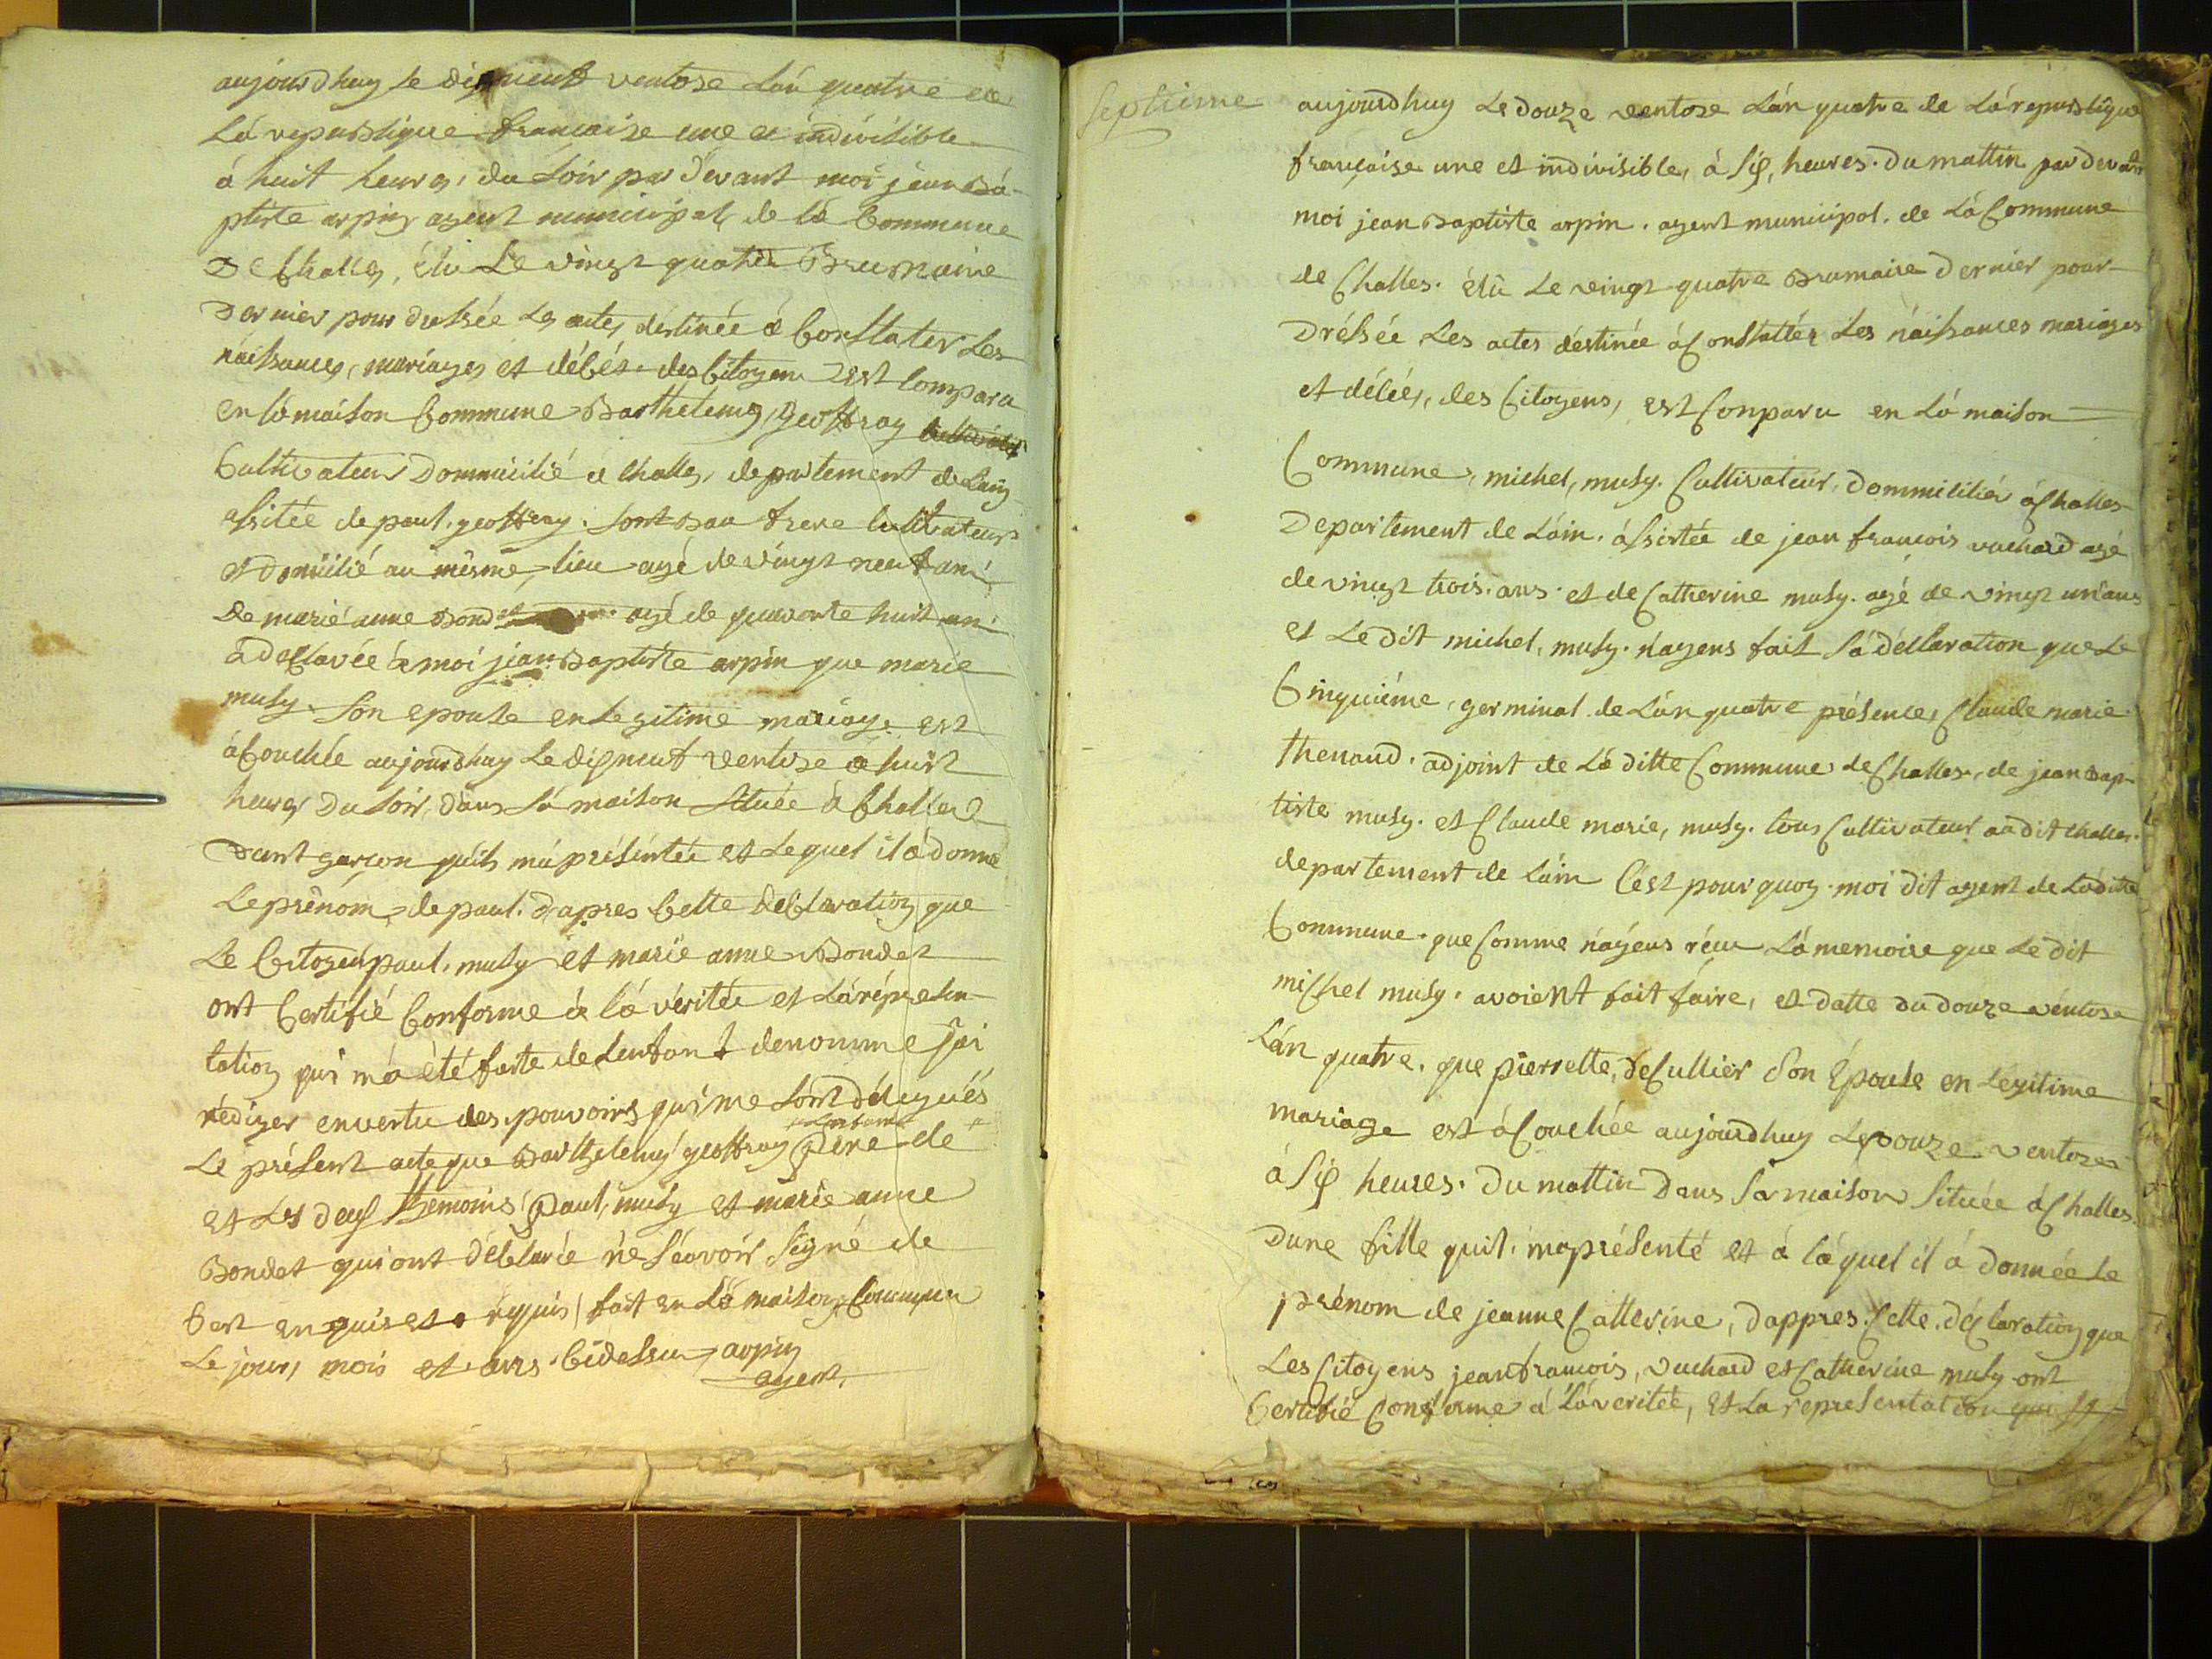 aujourdhuy le dixneuf ventose Lán quatre de
Lá republique francaise une et indivisible
á huit heures du soir par devant moi jean Bá-
ptiste arpin agent municipal de lá Commune
De Challes, élû Le vingt quatre Brumaire
Dernier pour dressée Les actes déstinée á Constater Les
náissances, mariages et décés des Citoyens est comparu
en lá maison Commune Barthelemy geoffray
Cultivateur Dommicilié á Challes, departement de Lain
assitée de paul geoffray son frere Cultivateur
et Domicilié au mésme lieu agé de vingt neuf ans
De marié anne Bondet agé de quarante huit ans
á declarée á moi jean Baptiste arpin que marie
musy son epouse en Legitime mariage est
ácouchée aujourdhuy Le dixneuf ventose á huit
heures Du soir, dans sá maison située á Challes
Dunt garcon quils má présintée et Lequel il á donné
Le prénom de paul. Dapres Cette Declaration que
Le Citoyen paul musy et marie anne Bondet
ont Certifié Conforme á lá véritée et Lá réprésen-
tation qui má été faite de Lenfant denomme jai
rédiger en vertu des pouvoirs qui me sont délégués
Lenfant
Le présent acte que Barthelemy geoffray pére de
et Les deux themoins Paul, musy et marie anne
Bondet qui ont déclarée ne sçavoir signé de
Cest enquis et requis fait en Lá maison Commune
Le jour, mois et ans Cidessus arpin
agent
Septiéme
aujourdhuy Le douze ventose Lán quatre de Lá republique
française une et indivisible, á six, heures. Du mattin par devant
moi jean Baptiste arpin. agent municipal. de Lá Commune
de Challes. élû Le vingt quatre Brumaire Dernier pour
Dréssée Les actes déstinée á Constattér Les náissances mariages
et décées, des Citoyens, est Conparu en Lá maison
Commune, michel, musy. Cultivateur, Dommicilié á Challes
Departement de Láin. ássistée de jean francois vuchard agé
de vingt trois. ans. et de Catherine musy. agé de vingt un ans
et Le dit michel, musy. náyens fait sá déclaration que Le
Cinquiéme, germinal de Lán quatre présence, Claude marie
thenaud. adjoint de Lá ditte Commune de Challes, de jean Bap-
tiste musy. et Claude marie, musy. tous Cultivateur audit Challes.
departement de Láin Cést pourquoy moi dit agent de Lá dite
Commune. que Comme náyens réçu Lá memoire que Le dit
michel musy. avoient fait fáire, et datte du douze véntose
Lán quatre. que pierrette, deCullier son Épouse en Legitime
mariage est áCouchée aujourdhuy Le douze ventose
á six heures. Du mattin Dans sa maison située á Challes
Dune fille quil, ma présenté et á láquel il á donnée Le
prénom de jeanne Catterine, Dappres. Cette. déclaration que
Les Citoyens jean francois, vuchard et Catherine musy ont
Certifié Conforme á Lá veritée, et La representation qui